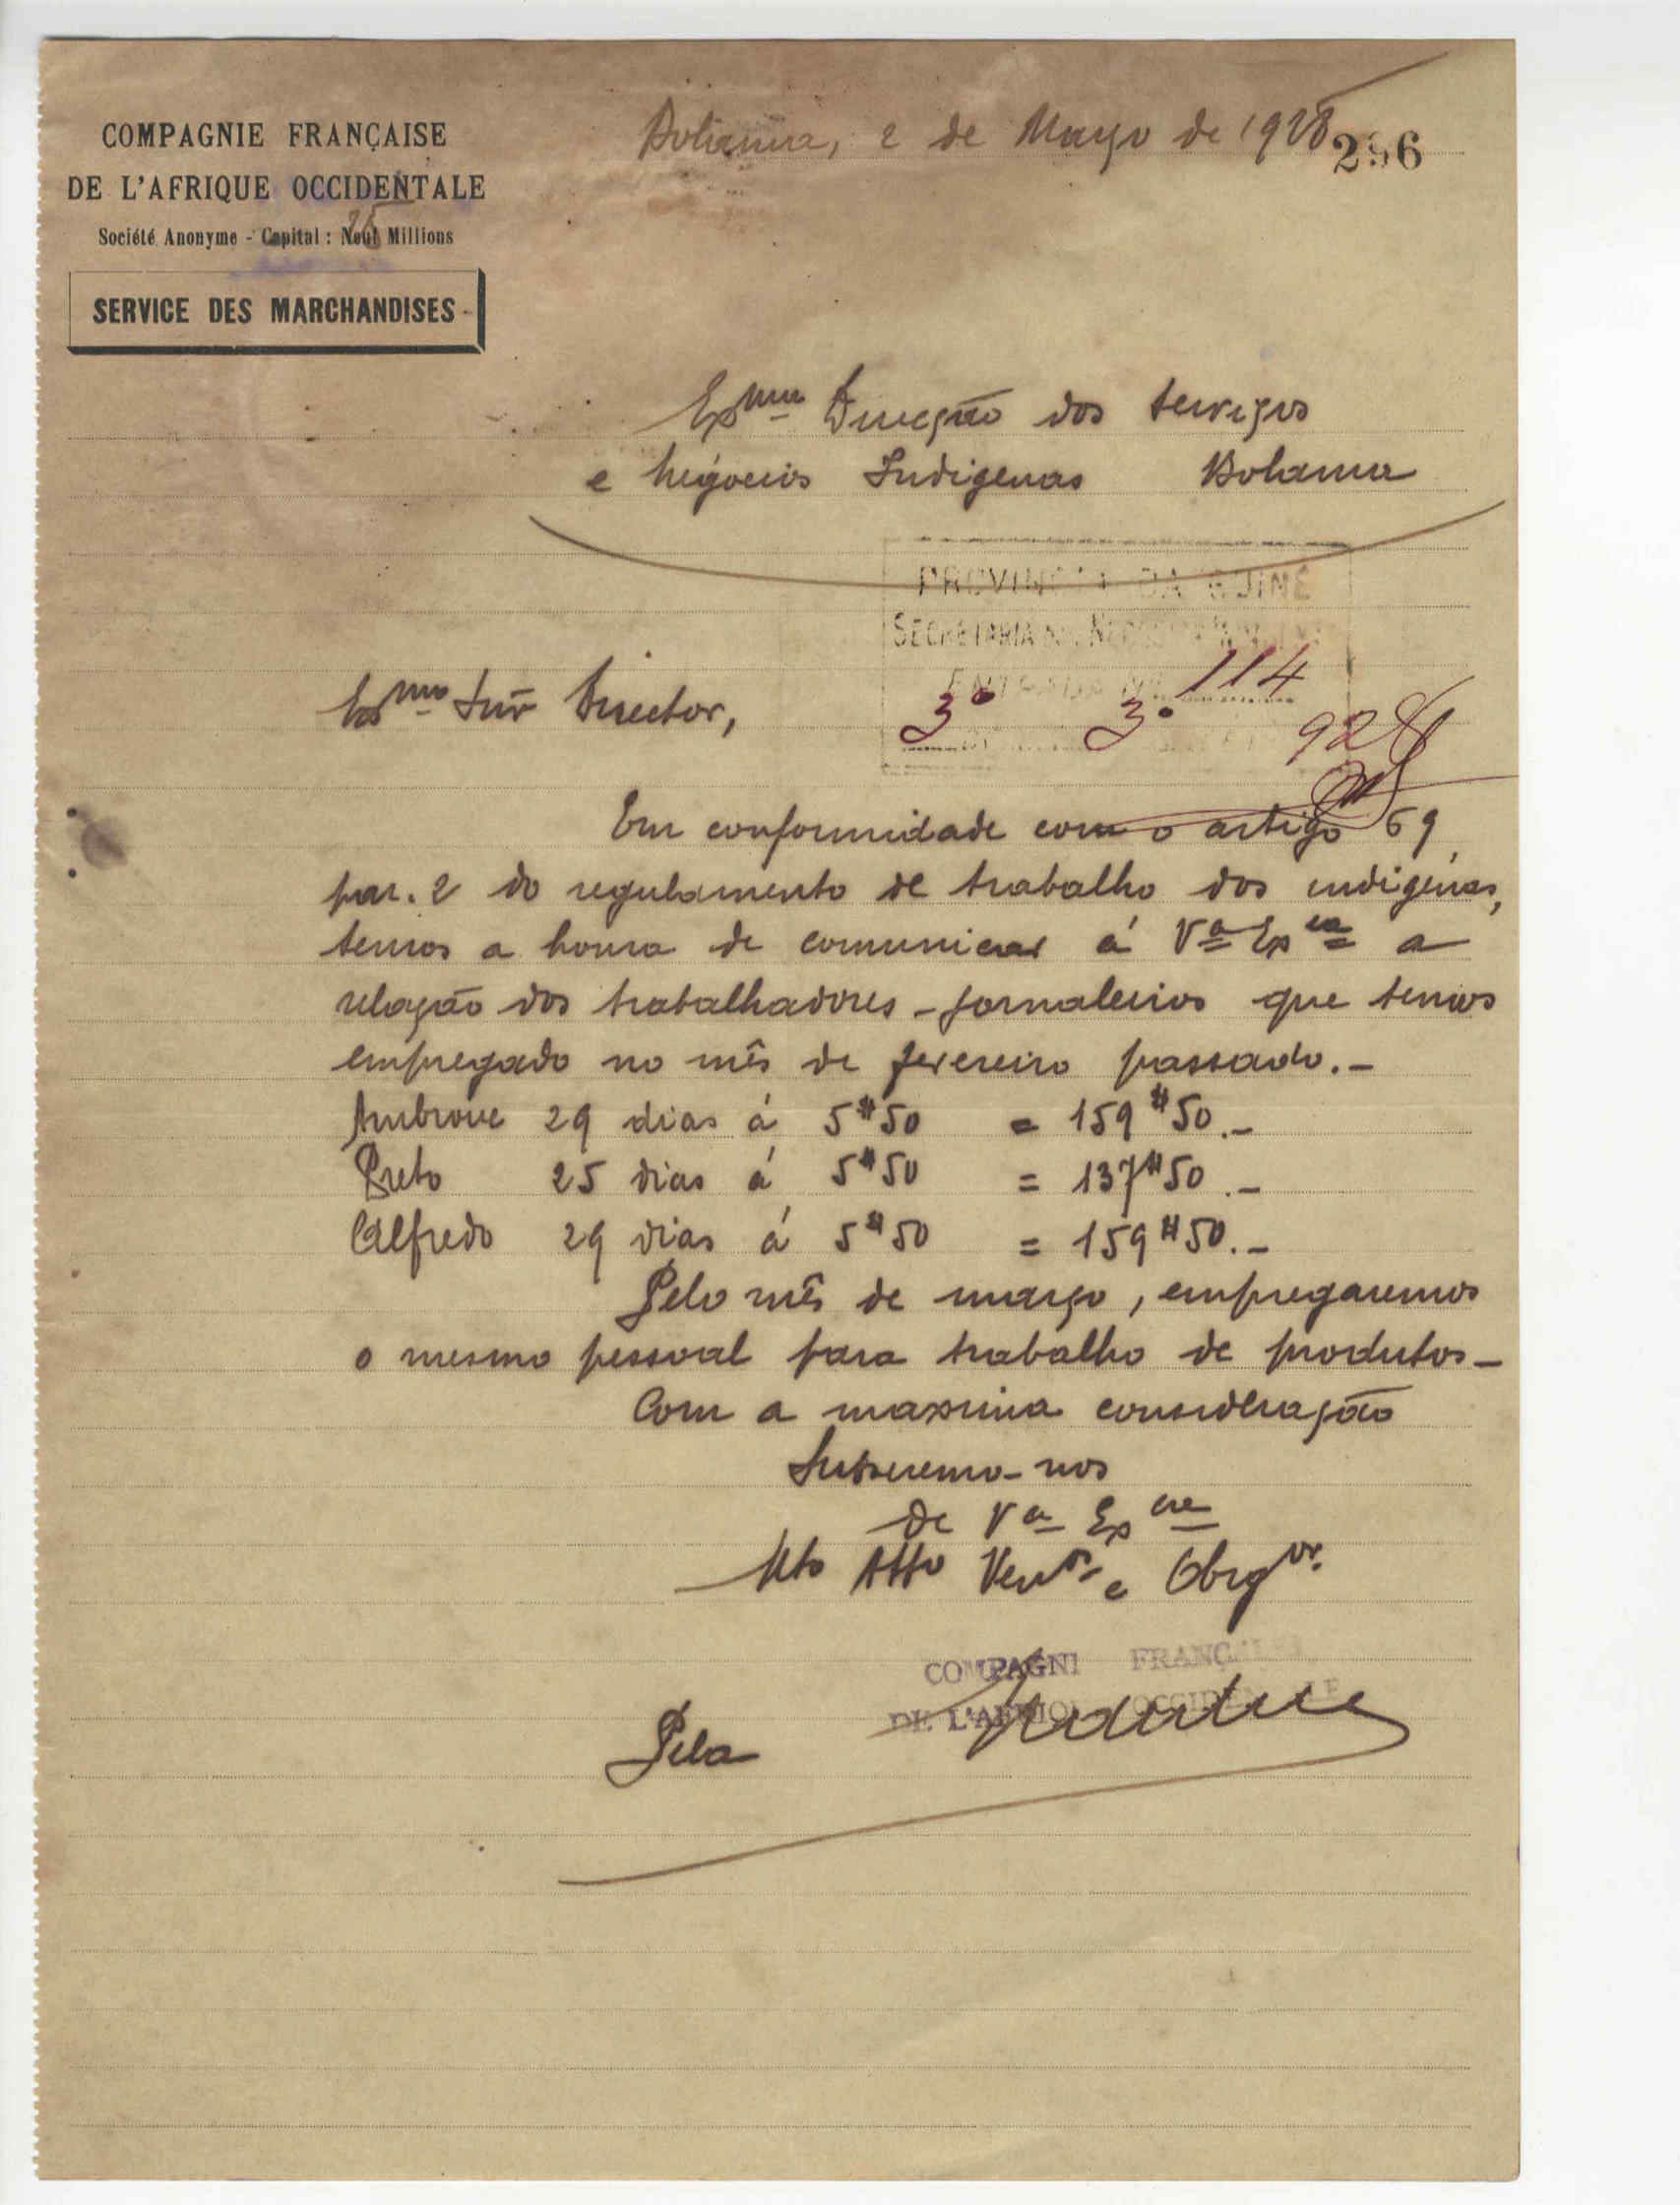 COMPAGNIE FRANÇAISE
DE L'AFRIQUE OCCIDENTALE
Société Anonyme - Capital : Neuf Millions
25
SERVICE DES MARCHANDISES
Bolama, 2 de Março de 1928
296
Exma Direcção dos serviços
e Negocios Indigenas Bolama
PROVINCIA DA GUINÉ
SECRETARIA DOS NEGOCIOS INDIGENAS
ENTRADA Nº 114
3º 3º 928
Exmo Snr Director,
Em conformidade com o artigo 69
par. 2 do regulamento de trabalho dos indigenas,
temos a honra de comunicar á Vª Excia a
relação dos trabalhadores-jornaleiros que temos
empregado no mês de fevereiro passado.-
29 dias á 5$50 = 159$50.-
Preto 25 dias á 5$50 = 137$50.-
Alfredo 29 dias á 5$50 = 159$50.-
Pelo mês de março, empregaremos
o mesmo pessoal para trabalho de produtos-
Com a maxima consideração
Subscremo-nos
de Vª Excia
Mto Atto Venrs e Obrgos.
COMPAGNI FRANÇ
DE L'AFRIQUE OCCIDENTALE
Pela